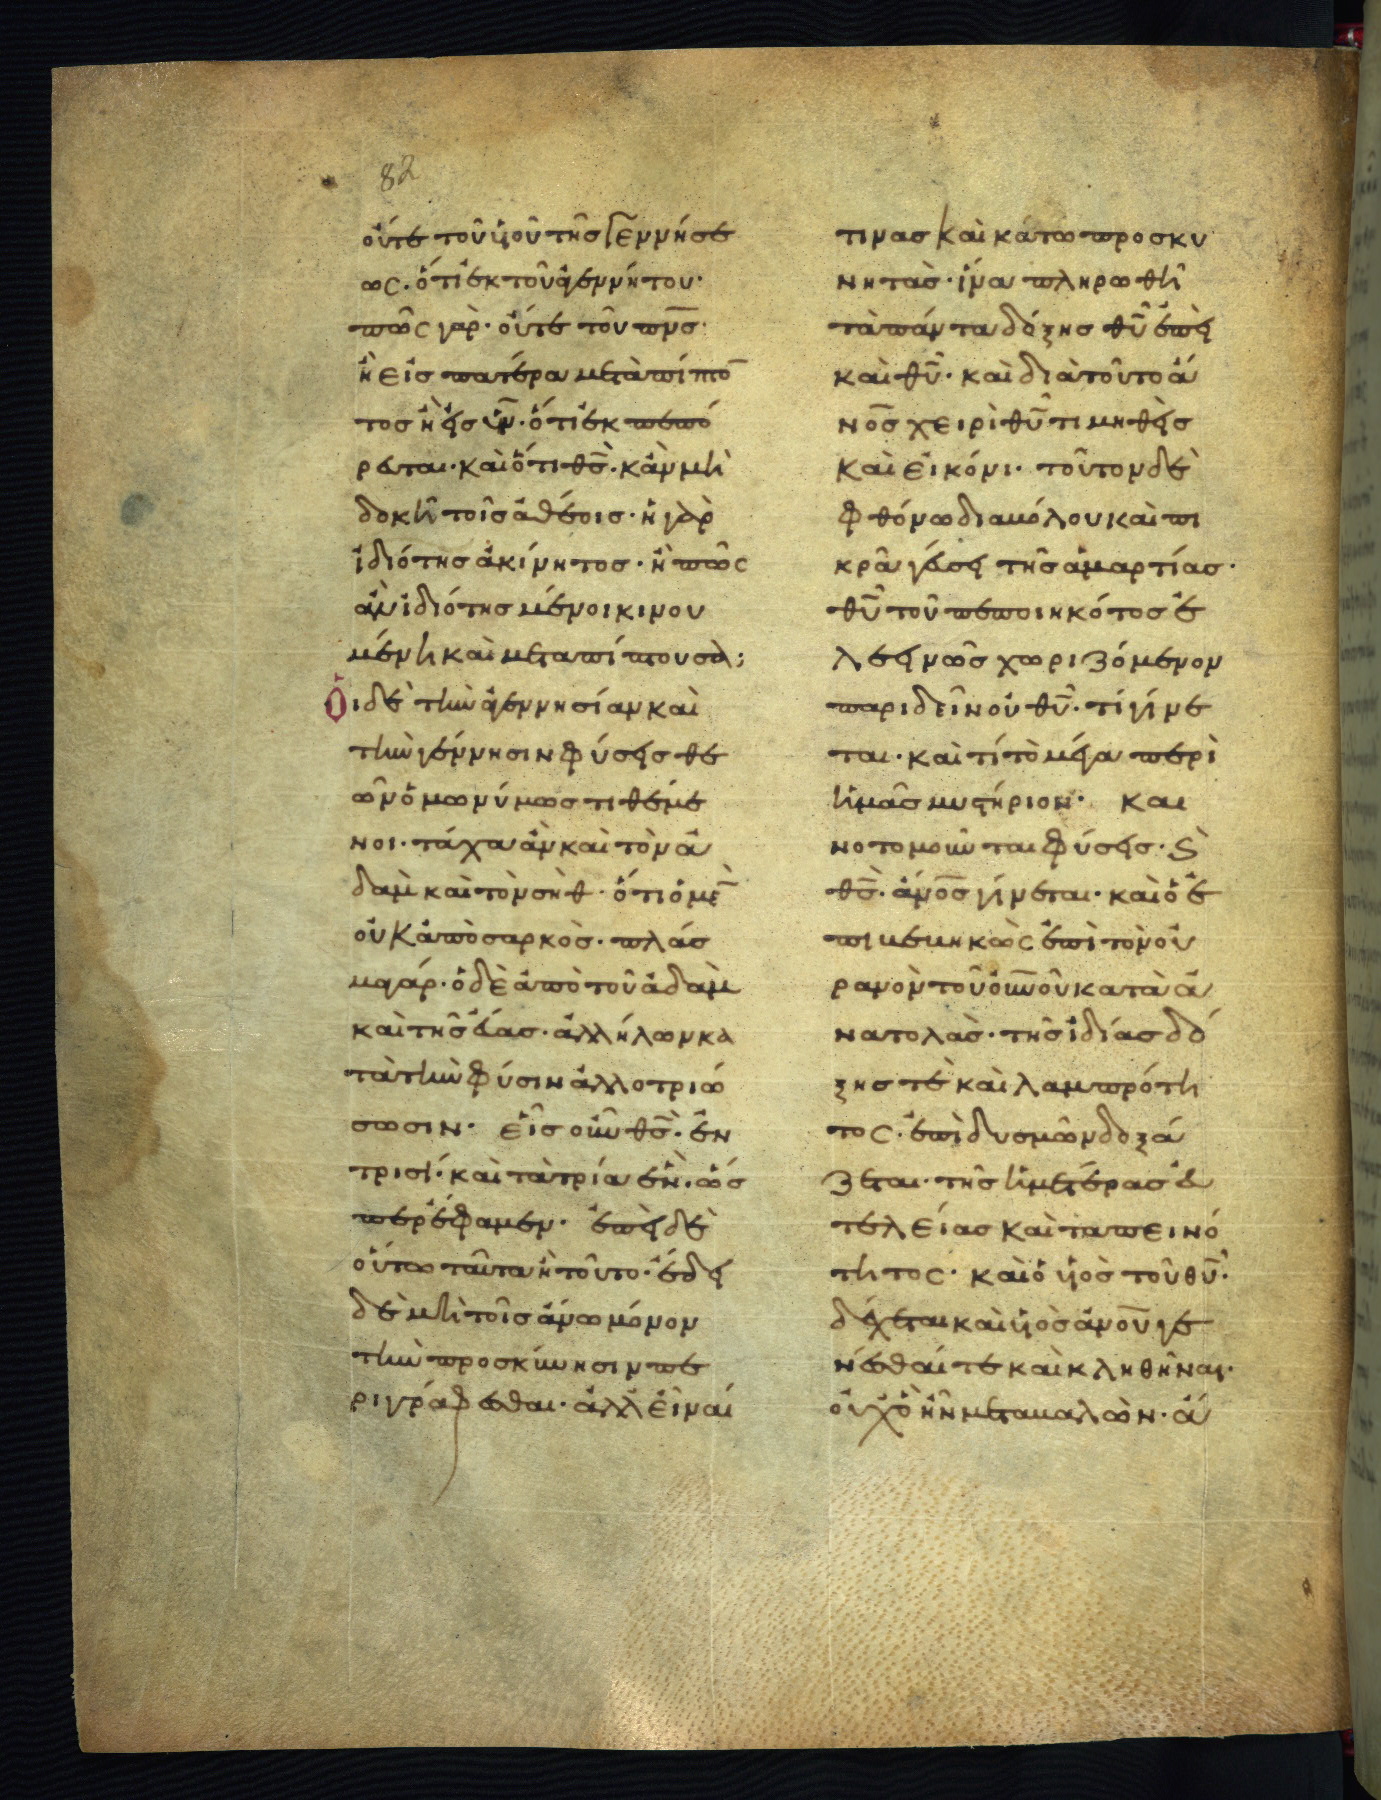 82
οὔτε τοῦ υἱοῦ τῆς γεννήσε
ως· ὅτι ἐκ τοῦ ἀγεννήτου·
πῶς γὰρ· οὔτε τοῦ πνς·
ἢ εἰς πατέρα μεταπίπτο
τος ἢ εἰς υν· ὅτι ἐκπεπό
ρευται· καὶ ὅτι θς· κἂν μὴ
δοκῆ τοῖς ἀθέοις· ἡ γὰρ
ἰδιότης ἀκίνητος· ἢ πῶς
ἂν ἰδιότης μένοι κινου
μένη καὶ μεταπίπτουσα;
Οἱ δὲ τὴν ἀγεννησίαν καὶ
τὴν γέννησιν φύσεις θε
ῶν ὁμωνύμως τιθέμε
νοι· τάχα ἂν καὶ τὸν ἀ
δαμ καὶ τὸν σὴθ· ὅτι ὁ με
οὐκ ἀπὸ σαρκὸς· πλάσ
μα γάρ· ὁ δὲ ἀπὸ τοῦ ἀδαμ
καὶ τῆς εὔας· ἀλλήλων κα
τὰ τὴν φύσιν ἀλλοτριώ
σωσιν· εἷς οὖν θς· ἐν
τρισί· καὶ τὰ τρία ἕν· ὥσ
περ ἔφαμεν· ἐπεὶ δὲ
οὕτω ταῦτα ἢ τοῦτο· ἔδει
δὲ μὴ τοῖς ἄνω μόνον
τὴν προσκύνησιν πε
ριγράφεσθαι· ἀλλ' εἶναί
τινας καὶ κάτω προσκυ
νητὰς· ἵνα πληρωθῆ
τὰ πάντα δόξης θυ ἐπεὶ
καὶ θυ· καὶ διὰ τοῦτο ἄ
νος χειρὶ θυ τιμηθεὶς
καὶ εἰκόνι· τοῦτον δὲ
φθόνω διαβόλου καὶ πι
κρᾶ γεύσει τῆς ἁμαρτίας·
θυ τοῦ πεποιηκότος ἐ
λεεινῶς χωριζόμενον
παριδεῖν οὐ θυ· τί γίνε
ται· καὶ τί τὸ μέγα περὶ
ἡμᾶς μυστήριον· και
νοτομοῦνται φύσεις· ϗ
θς· ἄνος γίνεται· καὶ ὁ ἐ
πιβεβηκὼς ἐπὶ τὸν οὐ
ρανὸν τοῦ οὐνοῦ κατὰ ἀ
νατολὰς· τῆς ἰδίας δό
ξης τὲ καὶ λαμπρότη
τος· ἐπὶ δυσμῶν δοξά
ζεται· τῆς ἡμετέρας εὐ
τελείας καὶ ταπεινό
τητος· καὶ ὁ υἱὸς τοῦ θυ·
δέχεται καὶ υἱὸς ἀνοῦ γε
νέσθαί τε καὶ κληθῆναι·
οὐχ ὃ ἦν μεταβαλὼν· ἄ